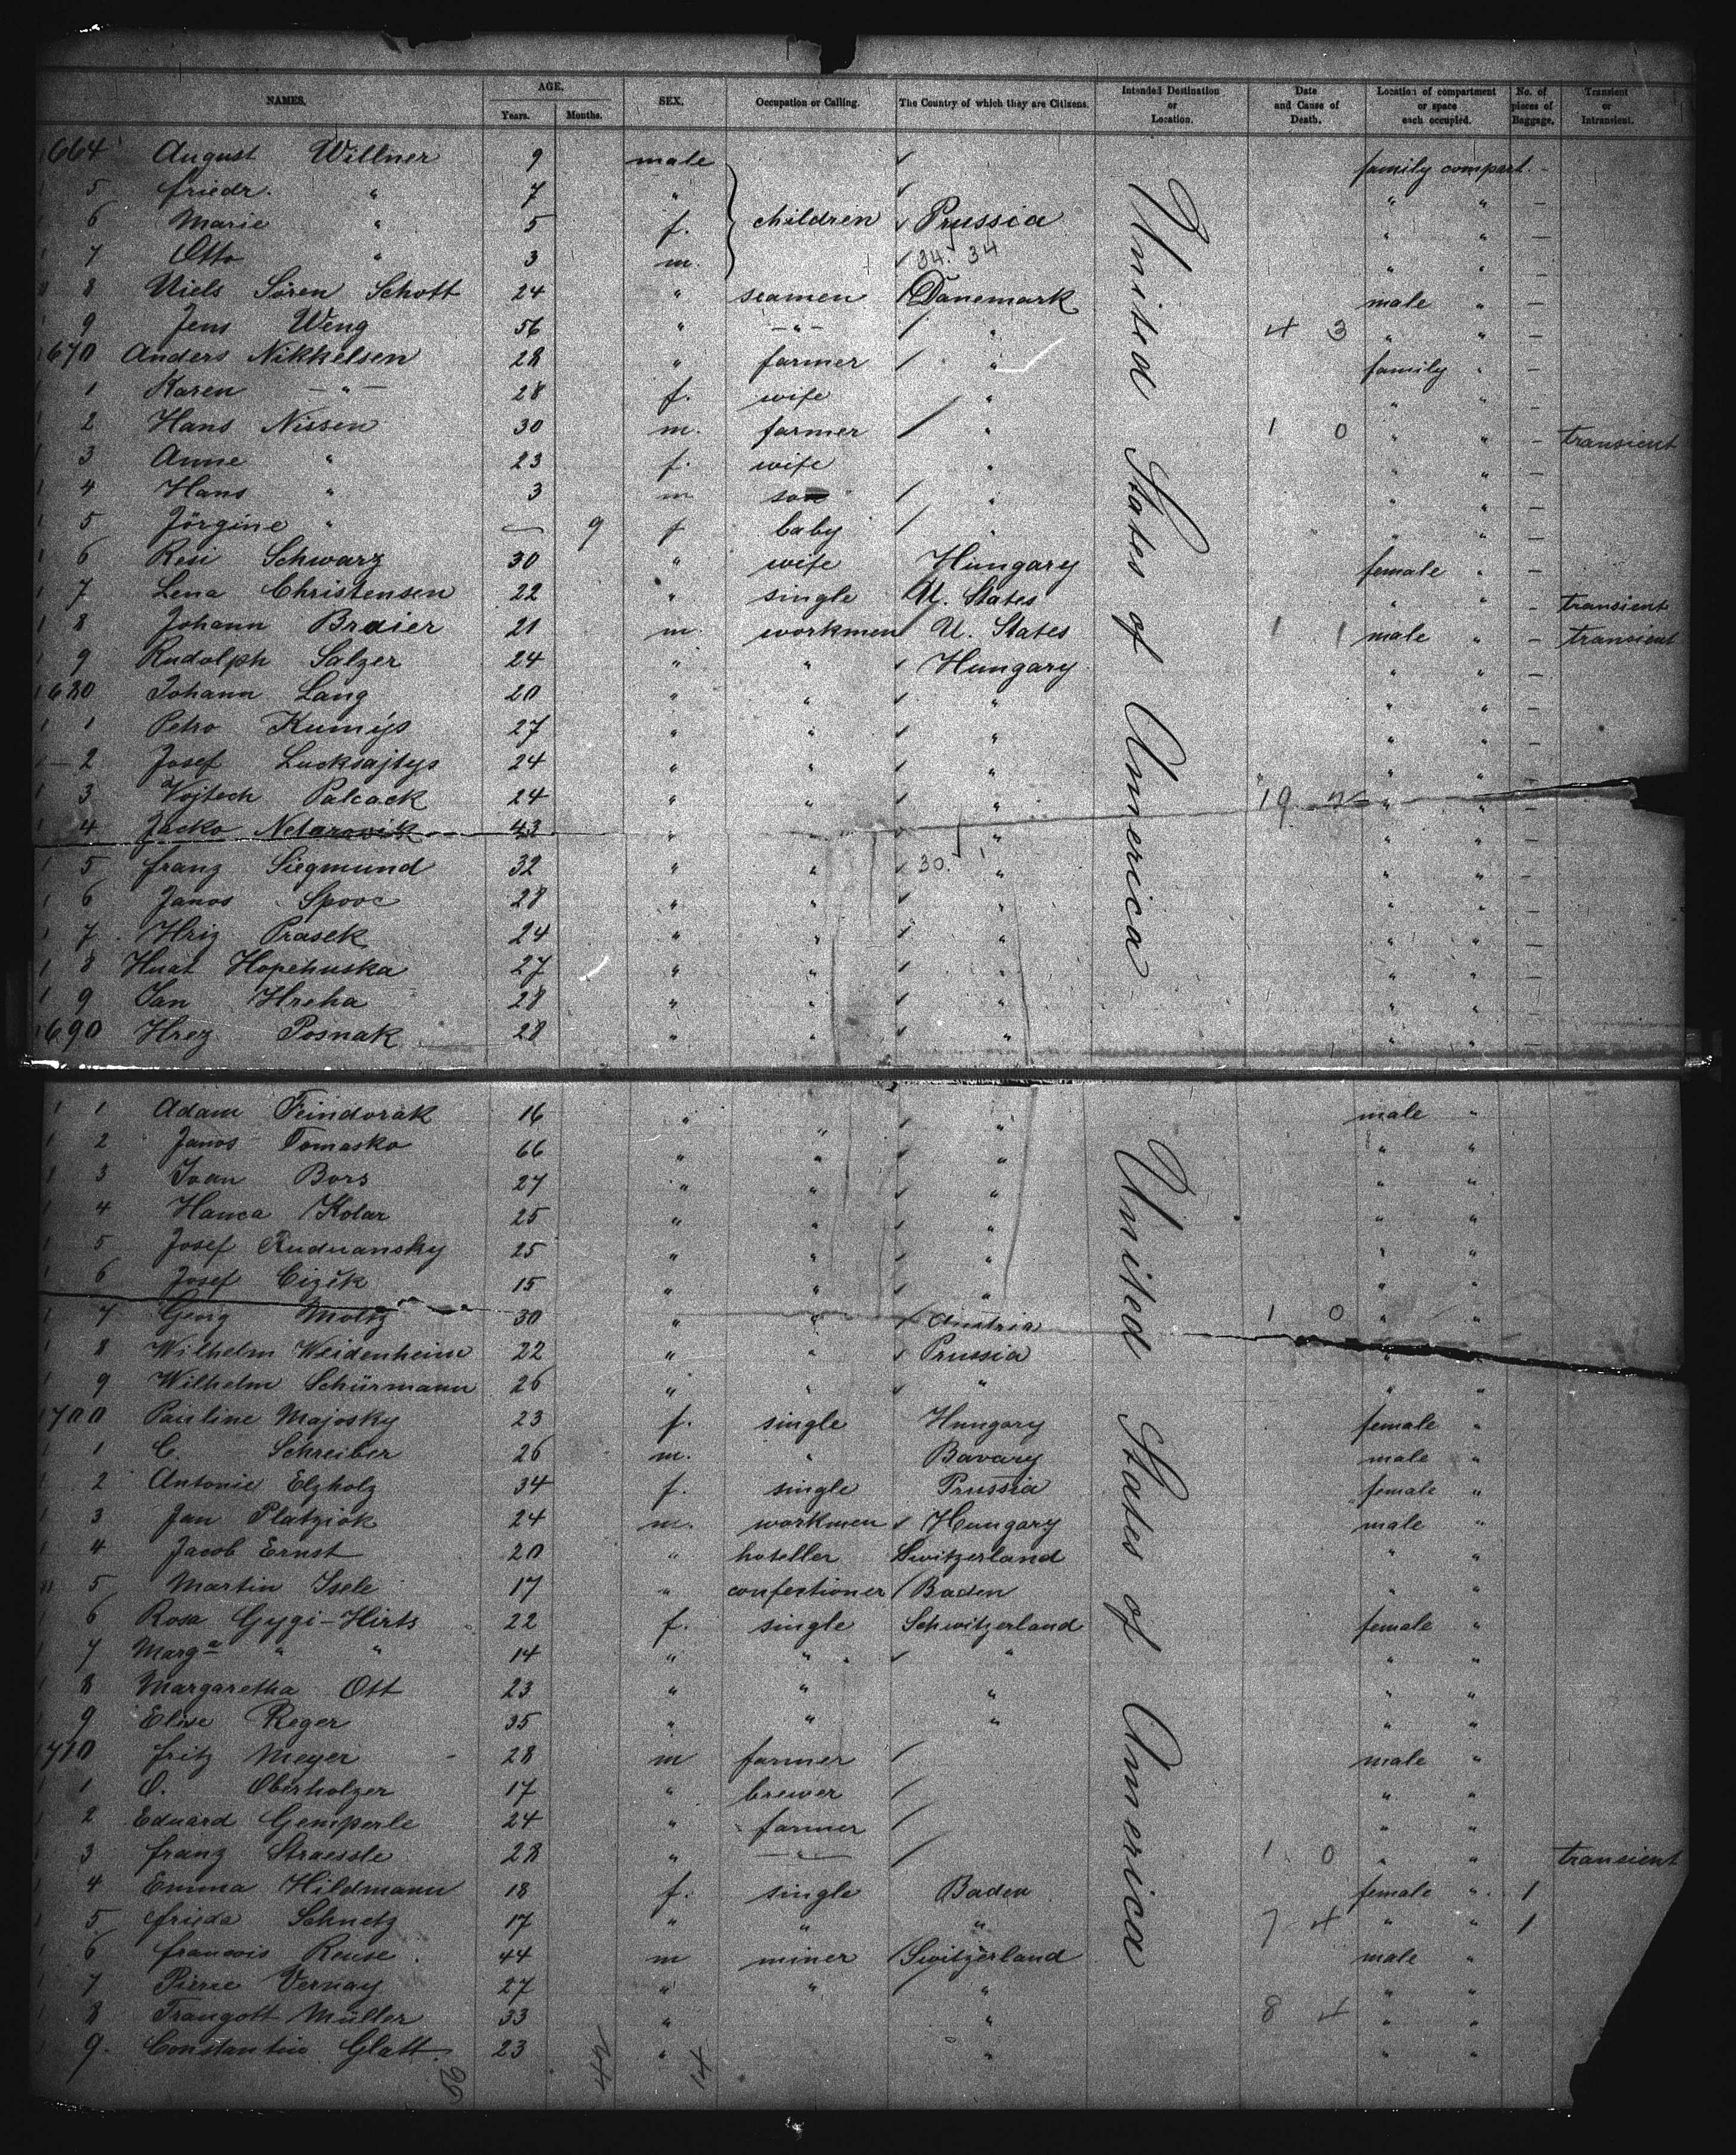 NAMES. AGE. Years. Months. SEX. Occupation or Calling. The Country of which they are Citizens. Intended Destination or Location. Date and Cause of Death. Location of compartment or space each occupied. No. of pieces of Baggage. Transient or Intransient.
United States of America
1664 August Willner 9 male family compart. -
5 friedr. " 7 " " " -
6 Marie " 5 f. children Prussia " " -
7 Otto " 3 m. 34. 34 " " -
8 Niels Sören Schott 24 " seamen Danemark male " -
9 Jens Weng 56 " -"- " 4 3 " " -
1670 Anders Nikkelsen 28 " farmer " family " -
1 Karen -"- 28 f. wife " " " -
2 Hans Nissen 30 m. farmer " 1 0 " " - transient
3 Anne " 23 f. wife " " " -
4 Hans " 3 m son " " " -
5 Jörgine " - 9 f baby " " " -
6 Resi Schwarz 30 " wife Hungary female " -
7 Lena Christensen 22 " single U. States " " - transient
8 Johann Braier 21 m. workmen U. States 1 1 male " - transient
9 Rudolph Salzer 24 " " Hungary " " -
1680 Johann Lang 20 " " " " " -
1 Petro Kumijs 27 " " " " " -
2 Josef Lucksajtys 24 " " " " "
3 Vojtech Palcack 24 " " " 19 " " -
4 Jacko Netarovik 43 " " " " " -
5 franz Siegmund 32 " " 30. " " " -
6 Janos Spooc 28 " " " " " -
7 Hriz Prasek 24 " " " " " -
8 Huat Hopehuska 27 " " " " " -
9 Jan Hreha 28 " " " " " -
1690 Hrez Posnak 28 " " " " " -
United States of America
1 Adam Feindorak 16 " " " male "
2 Janos Tomasko 66 " " " " "
3 Ivan Bors 27 " " " " "
4 Hanca Kolar 25 " " " " "
5 Josef Ruduansky 25 " " " " "
6 Josef Cizĕk 15 " " " " "
7 Georg Moltz 30 " " Austria 1 0 " "
8 Wilhelm Weidenheim 22 " " Prussia " "
9 Wilhelm Schürmann 26 " " " " "
1700 Pauline Majosky 23 f. single Hungary female "
1 C. Schreiber 26 m. " Bavary male "
2 Antonie Elzholz 34 f. single Prussia female "
3 Jan Platziok 24 m. workmen Hungary male "
4 Jacob Ernst 20 " hoteller Switzerland " "
5 Martin Isele 17 " confectioner Baden " "
6 Rosa Gygi-Hirts 22 f. single Schwitzerland female "
7 Marga " " 14 " " " " "
8 Margaretha Ott 23 " " " " "
9 Elise Reger 35 " " " " "
1710 fritz Meyer 28 m farmer male "
1 O. Oberholzer 17 " brewer " "
2 Eduard Gemperle 24 " farmer " "
3 franz Straessle 28 " -"- 1 0 " " transient
4 Emma Hildmann 18 f. single Baden female " 1
5 frieda Schnetz 17 " " " 7 4 " " 1
6 francois Reuse 44 m miner Switzerland male "
7 Pierre Vernay 27 " " " " "
8 Traugott Müller 33 " " 8 4 " "
9. Constantin Glatt 23 " " " "